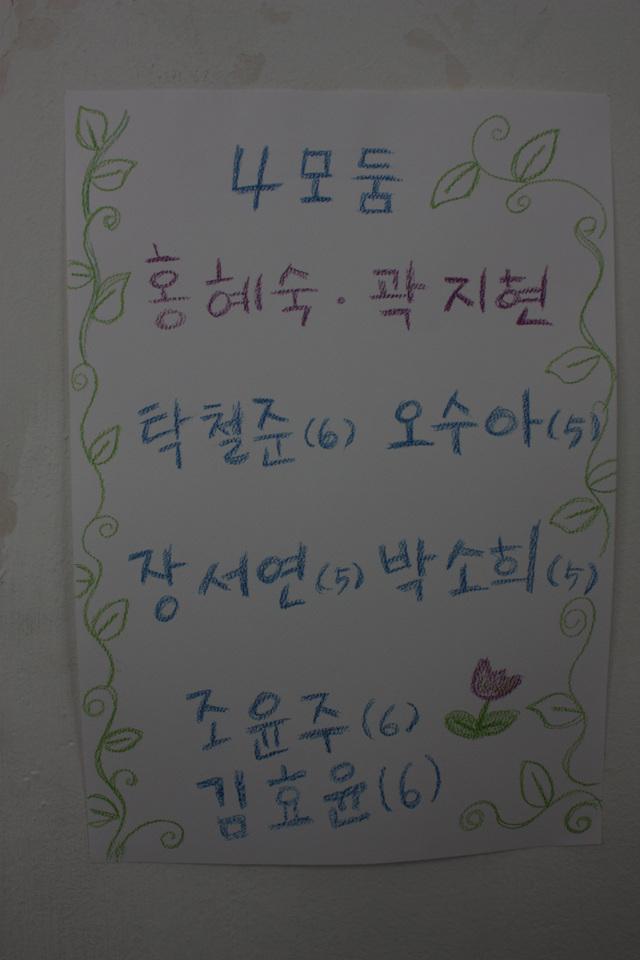 4모둠
홍혜숙 · 곽지현
탁철준(6) 오수아(5)
장서연(5) 박소희(5)
조윤주(6)
김효윤(6)